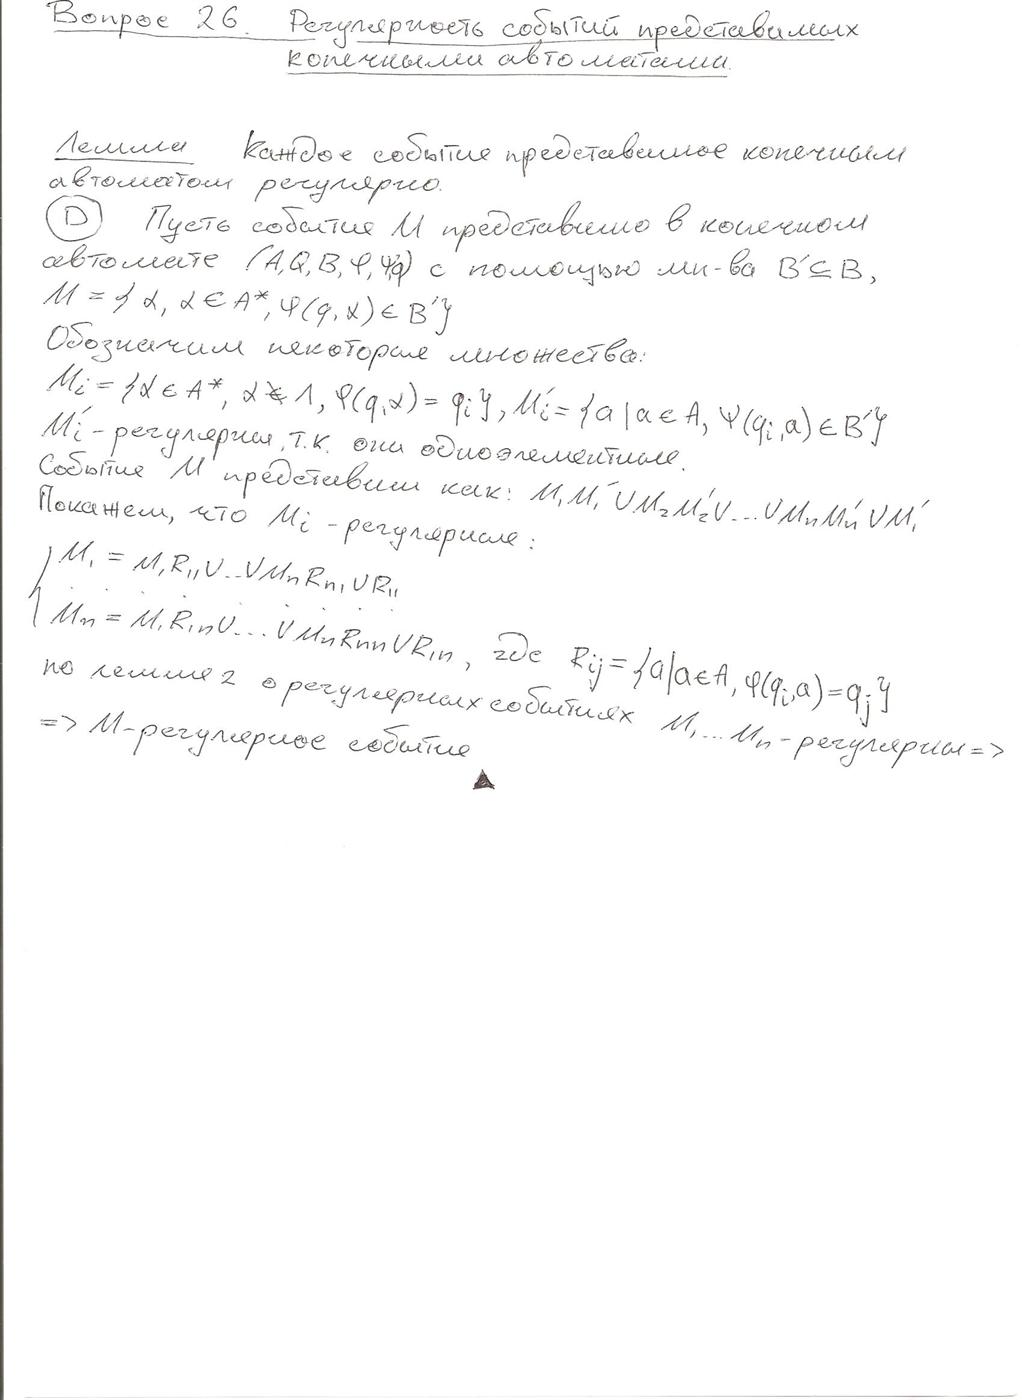 Вопрос 26. Регулярность событий представимых
конечными автоматами.
Лемма Каждое событие представимое конечным
автоматом регулярно.
Ⓓ Пусть событие M представимо в конечном
автомате (A, Q, B, φ, ψ, q) с помощью мн-ва B' ⊆ B,
M = { α, α ∈ A*, φ(q, α) ∈ B' }
Обозначим некоторые множества:
Mi = {α ∈ A*, α ≠ Λ, φ(q, α) = qi }, Mi' = { a | a ∈ A, ψ(qi, a) ∈ B' }
Mi' - регулярны, т.к. они одноэлементные.
Событие M представим как: M₁M₁' ∪ M₂M₂' ∪ ... ∪ MnMn' ∪ M₁'
Покажем, что Mi - регулярные:
M₁ = M₁R₁₁ ∪ ... ∪ MnRn₁ ∪ R₁₁
. . . . . . . .
Mn = M₁R₁n ∪ ... ∪ MnRnn ∪ R₁n, где Rij = {a | a ∈ A, φ(qi, a) = qj }
по лемме 2 о регулярных событиях M₁ ... Mn - регулярны =>
=> M - регулярное событие